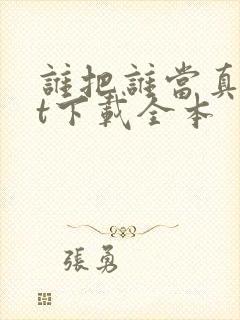 誰把誰當真
t下載全本
張勇